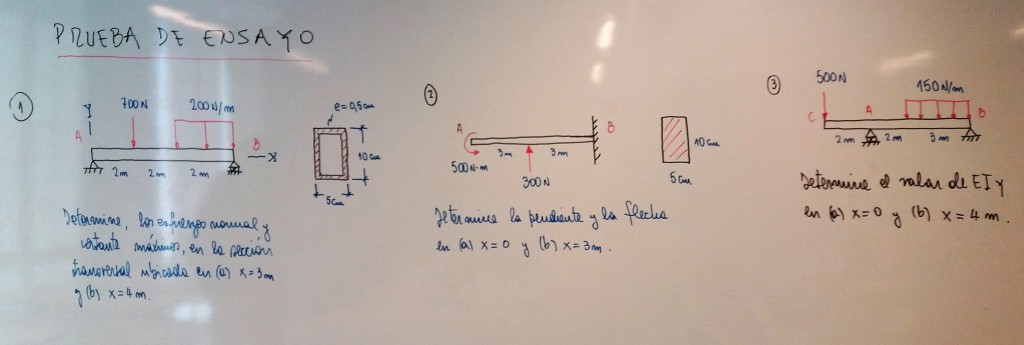 PRUEBA DE ENSAYO
1
Y
700N
200N/m
A
B
X
2m
2m
2m
e=0,5cm
10cm
5cm
Determine, los esfuerzos normal y
cortante máximos, en la sección
transversal ubicada en (a) x=3m
y (b) x=4m.
2
A
B
3m
3m
500N-m
300N
10cm
5cm
Determine la pendiente y la flecha
en (a) x=0 y (b) x=3m.
3
500N
150N/m
C
A
B
2m
2m
3m
Determine el valor de EIy
en (a) x=0 y (b) x=4m.